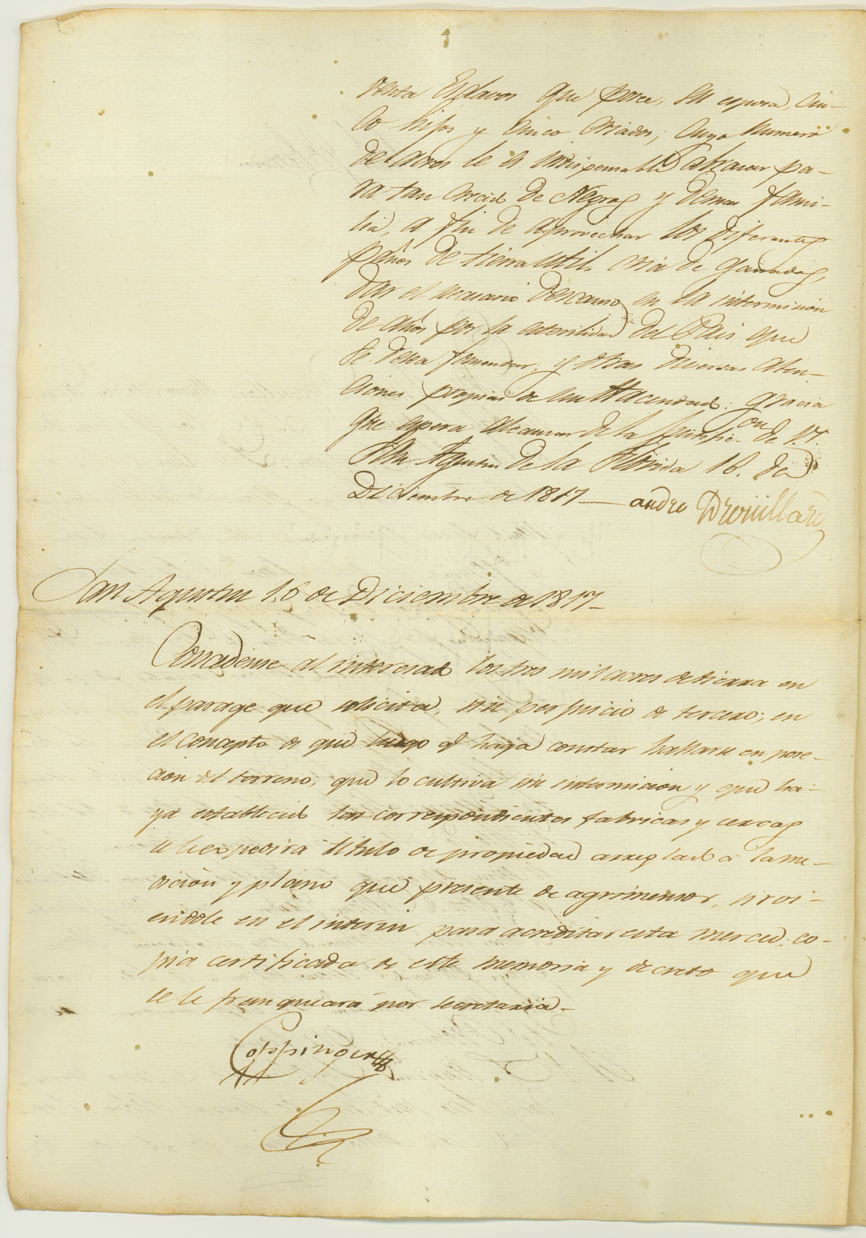 renta Esclavos que posee, su esposa, cin-
co hijos y cinco criados; cuyo numero
de acres le es indispensable abrazar pa-
ra tan crecid de Negros y demas fami-
lia, a fin de aprovechar los diferentes
paños de tierra util, cria de ganados,
dar el necesario descanso en la intermision
de años por la esterilidad del Pais que
se desea fomentar, y otras diversas aten-
ciones propias de un Hacendad: gracia
que espera alcanzar de la justific.on de V.S.
San Agustin de la Florida 16. de
Diciembre de 1817— andro Drouillard
San Agustin 16 de Diciembre de 1817—
Concedense al interesad los tres mil acres de tierra en
el parage que solicita, sin perjuicio de tercero; en
el concepto de que luego q.e haga constar hallarse en pose-
cion del terreno, que lo cultiva sin intermicion y que ha-
ya establecid las correspondientes fabricas y cercas
se le expedira titulo de propiedad arreglado à la me-
dicion y plano que presente de agrimensor, sirvi-
endole en el interin para acreditar esta merced, co-
pia certificada de este memoria y decreto que
se le franqueará por secretaria.—
Coppinger